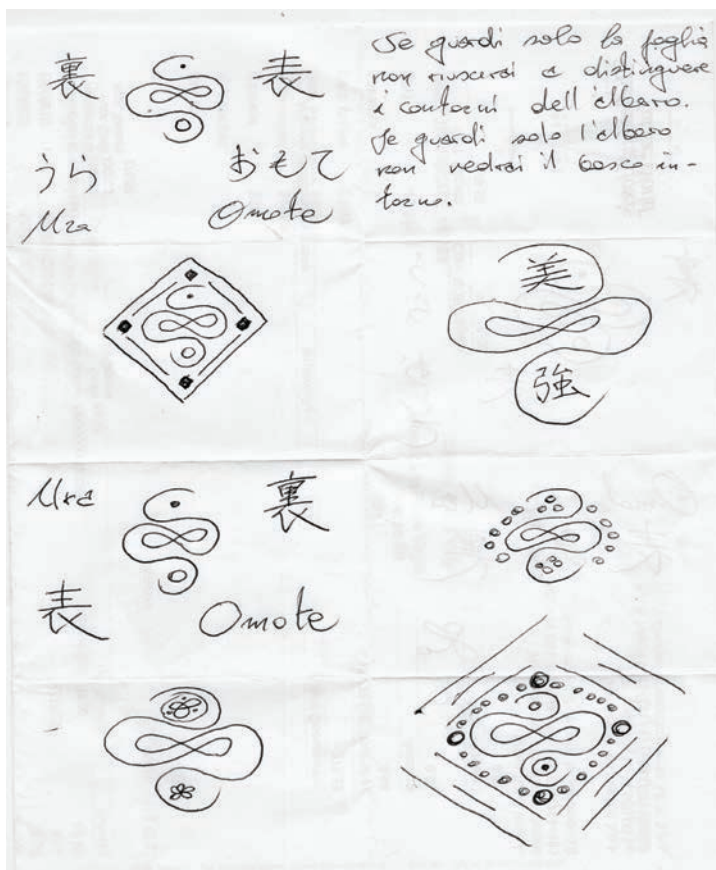 裏 表
うら おもて
Ura Omote
Se guardi solo la foglia
non riuscirai a distinguere
i contorni dell'albero.
Se guardi solo l'albero
non vedrai il bosco in-
torno.
美
強
Ura 裏
表 Omote